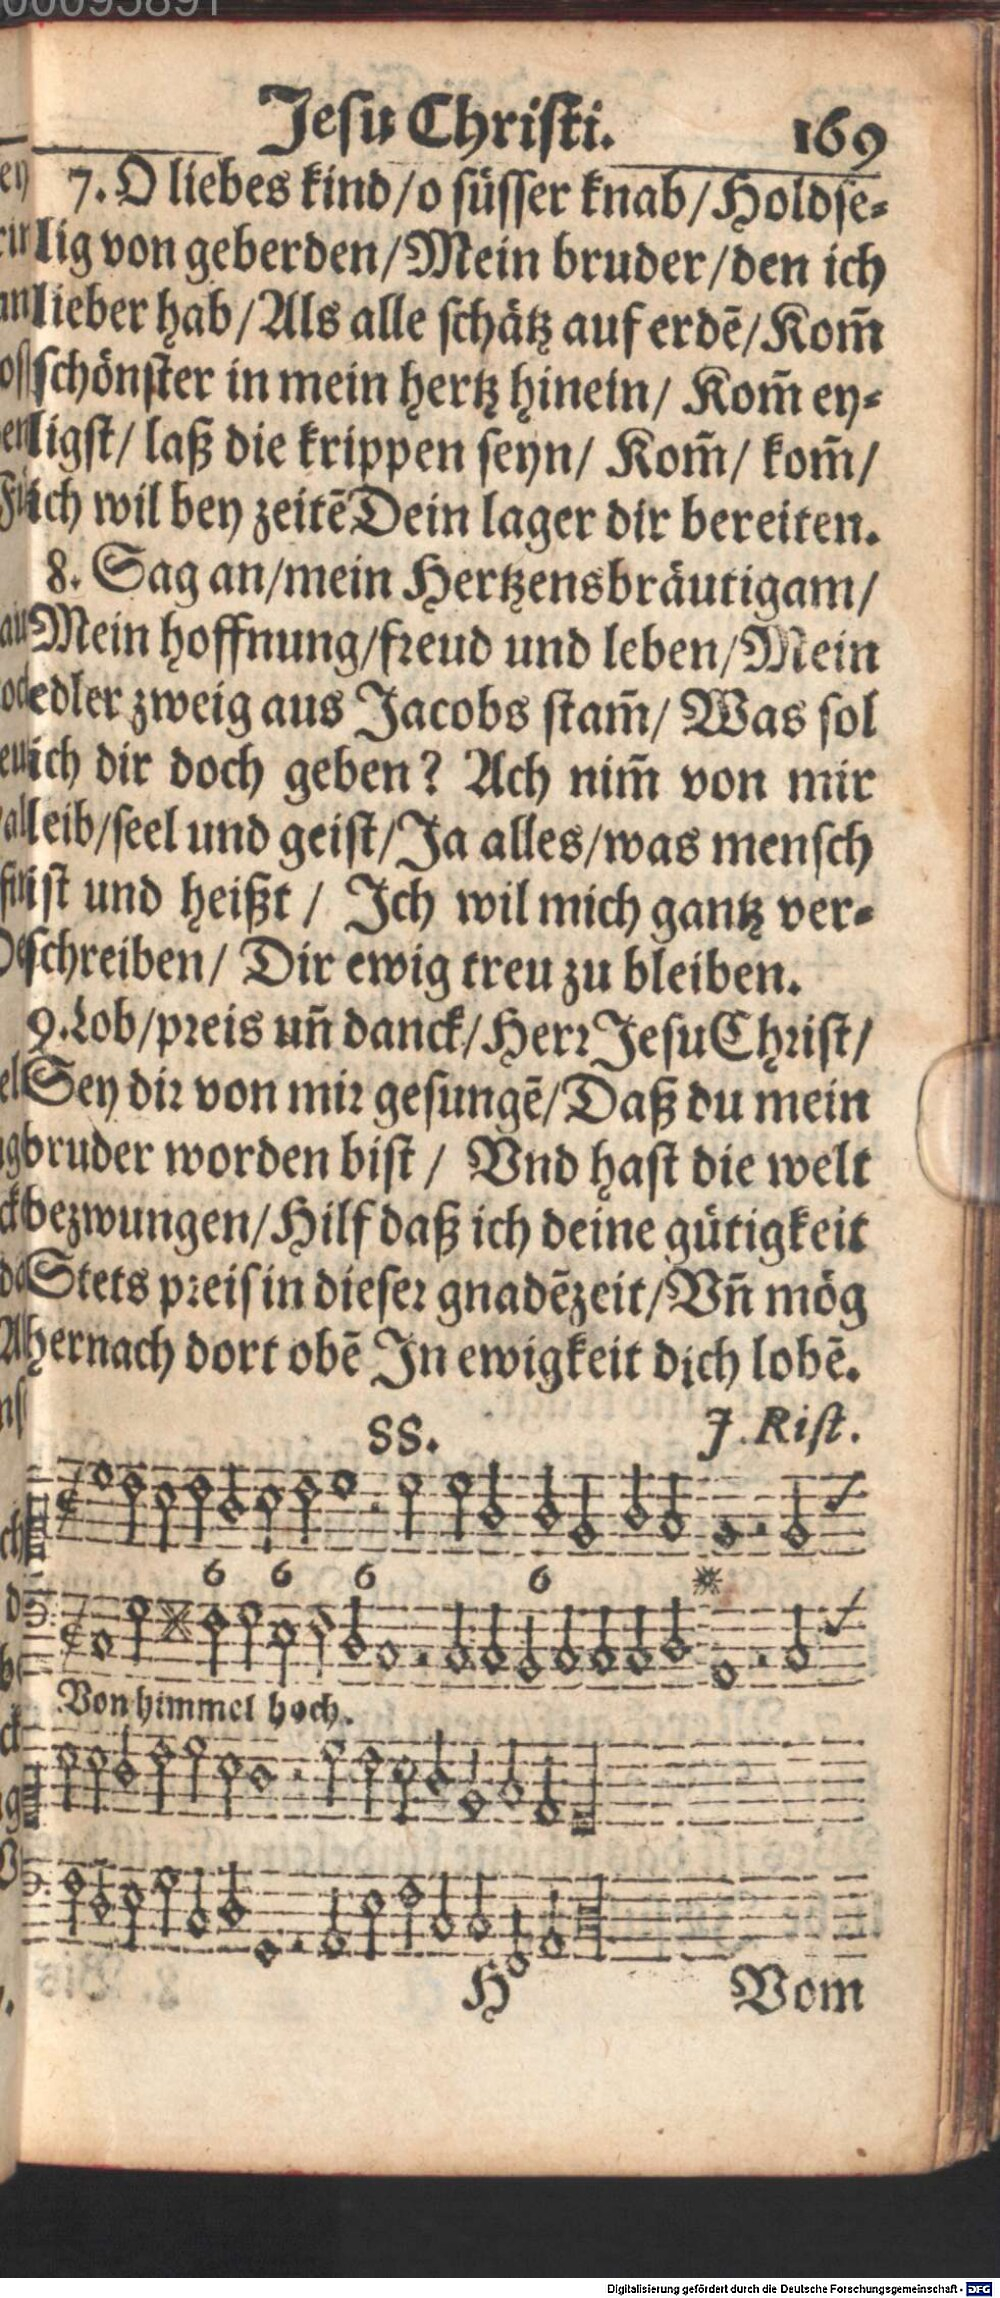 Jesu Christi. 169
7. O liebes kind/o süsser knab/Holdse-
lig von geberden/Mein bruder/den ich
lieber hab/Als alle schätz auf erdē/Kom̃
schönster in mein hertz hinein/ Kom̃ ey-
ligst/ laß die krippen seyn/ Kom̃/ kom̃/
ich wil bey zeitē Dein lager dir bereiten.
8. Sag an/mein Hertzensbräutigam/
Mein hoffnung/freud und leben/Mein
edler zweig aus Jacobs stam̃/ Was sol
ich dir doch geben? Ach nim̃ von mir
leib/seel und geist/Ja alles/was mensch
ist und heißt / Ich wil mich gantz ver-
schreiben/ Dir ewig treu zu bleiben.
9. Lob/preis uñ danck/Herr Jesu Christ/
Sey dir von mir gesungē/Daß du mein
bruder worden bist / Vnd hast die welt
bezwungen/Hilf daß ich deine gütigkeit
Stets preis in dieser gnadēzeit/Vñ mög
hernach dort obē In ewigkeit dich lobē.
SS. J. Rist.
6 6 6 6
Von himmel hoch.
H Vom
Digitalisierung gefördert durch die Deutsche Forschungsgemeinschaft - DFG